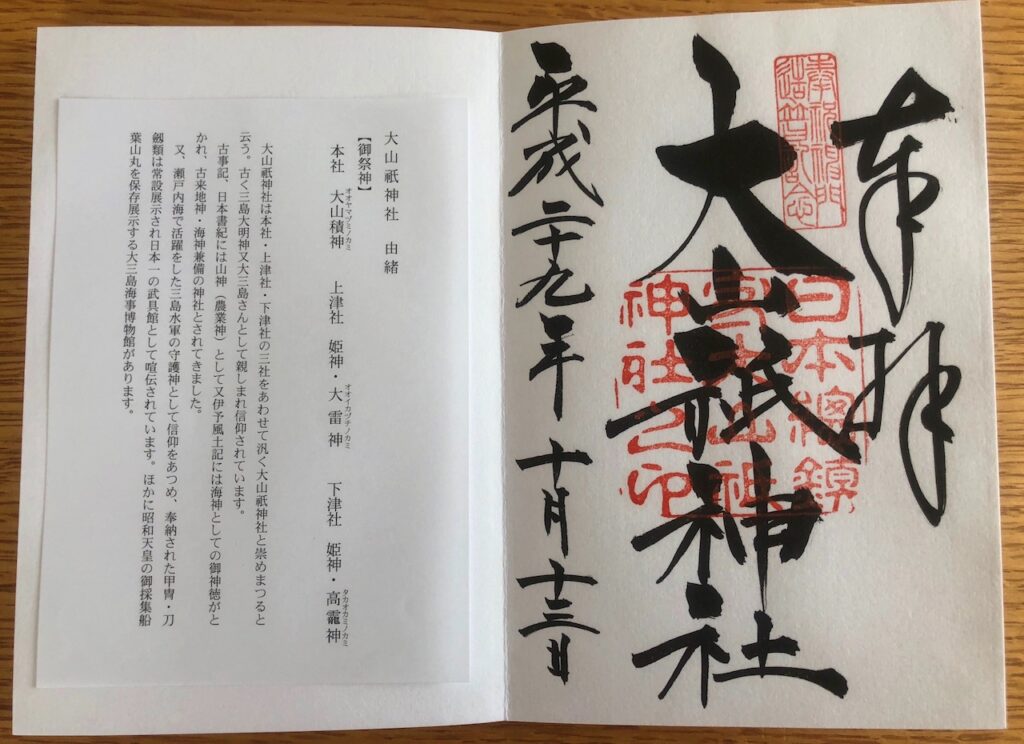 奉拝
奉祝總門
造営記念
大山祇神社
日本總鎮
守大山祇
神社之印
平成二十九年十月十三日
大山祇神社　由緒
【御祭神】
本社　大山積神　上津社　姫神・大雷神　下津社　姫神・高龗神
オオヤマヅミノカミ　オオイカヅチノカミ　タカオカミノカミ
大山祇神社は本社・上津社・下津社の三社をあわせて汎く大山祇神社と崇めまつると
云う。古く三島大明神又大三島さんとして親しまれ信仰されています。
古事記、日本書紀には山神（農業神）として又伊予風土記には海神としての御神徳がと
かれ、古来地神・海神兼備の神社とされてきました。
又、瀬戸内海で活躍をした三島水軍の守護神として信仰をあつめ、奉納された甲冑・刀
剱類は常設展示され日本一の武具館として喧伝されています。ほかに昭和天皇の御採集船
葉山丸を保存展示する大三島海事博物館があります。